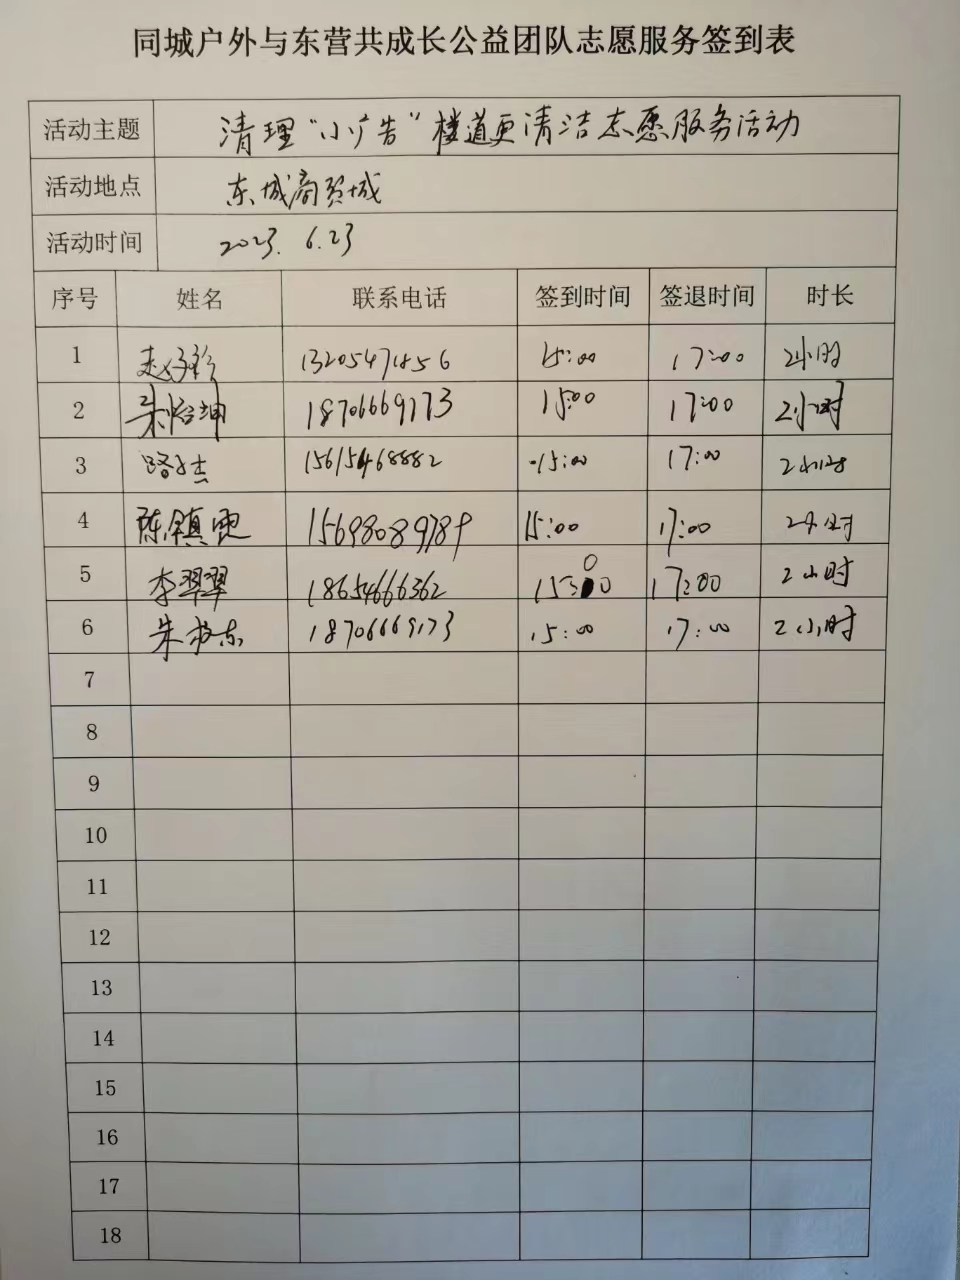 同城户外与东营共成长公益团队志愿服务签到表
活动主题 清理“小广告”楼道更清洁志愿服务活动
活动地点 东城商贸城
活动时间 2023.6.23
序号 姓名 联系电话 签到时间 签退时间 时长
1 13205471856 15:00 17:00 2小时
2 朱怡坤 18706669173 15:00 17:00 2小时
3 路杰 15615468882 15:00 17:00 2小时
4 陈镇 15698089789 15:00 17:00 2小时
5 李翠翠 18654666362 15:00 17:00 2小时
6 朱 东 18706669173 15:00 17:00 2小时
7
8
9
10
11
12
13
14
15
16
17
18